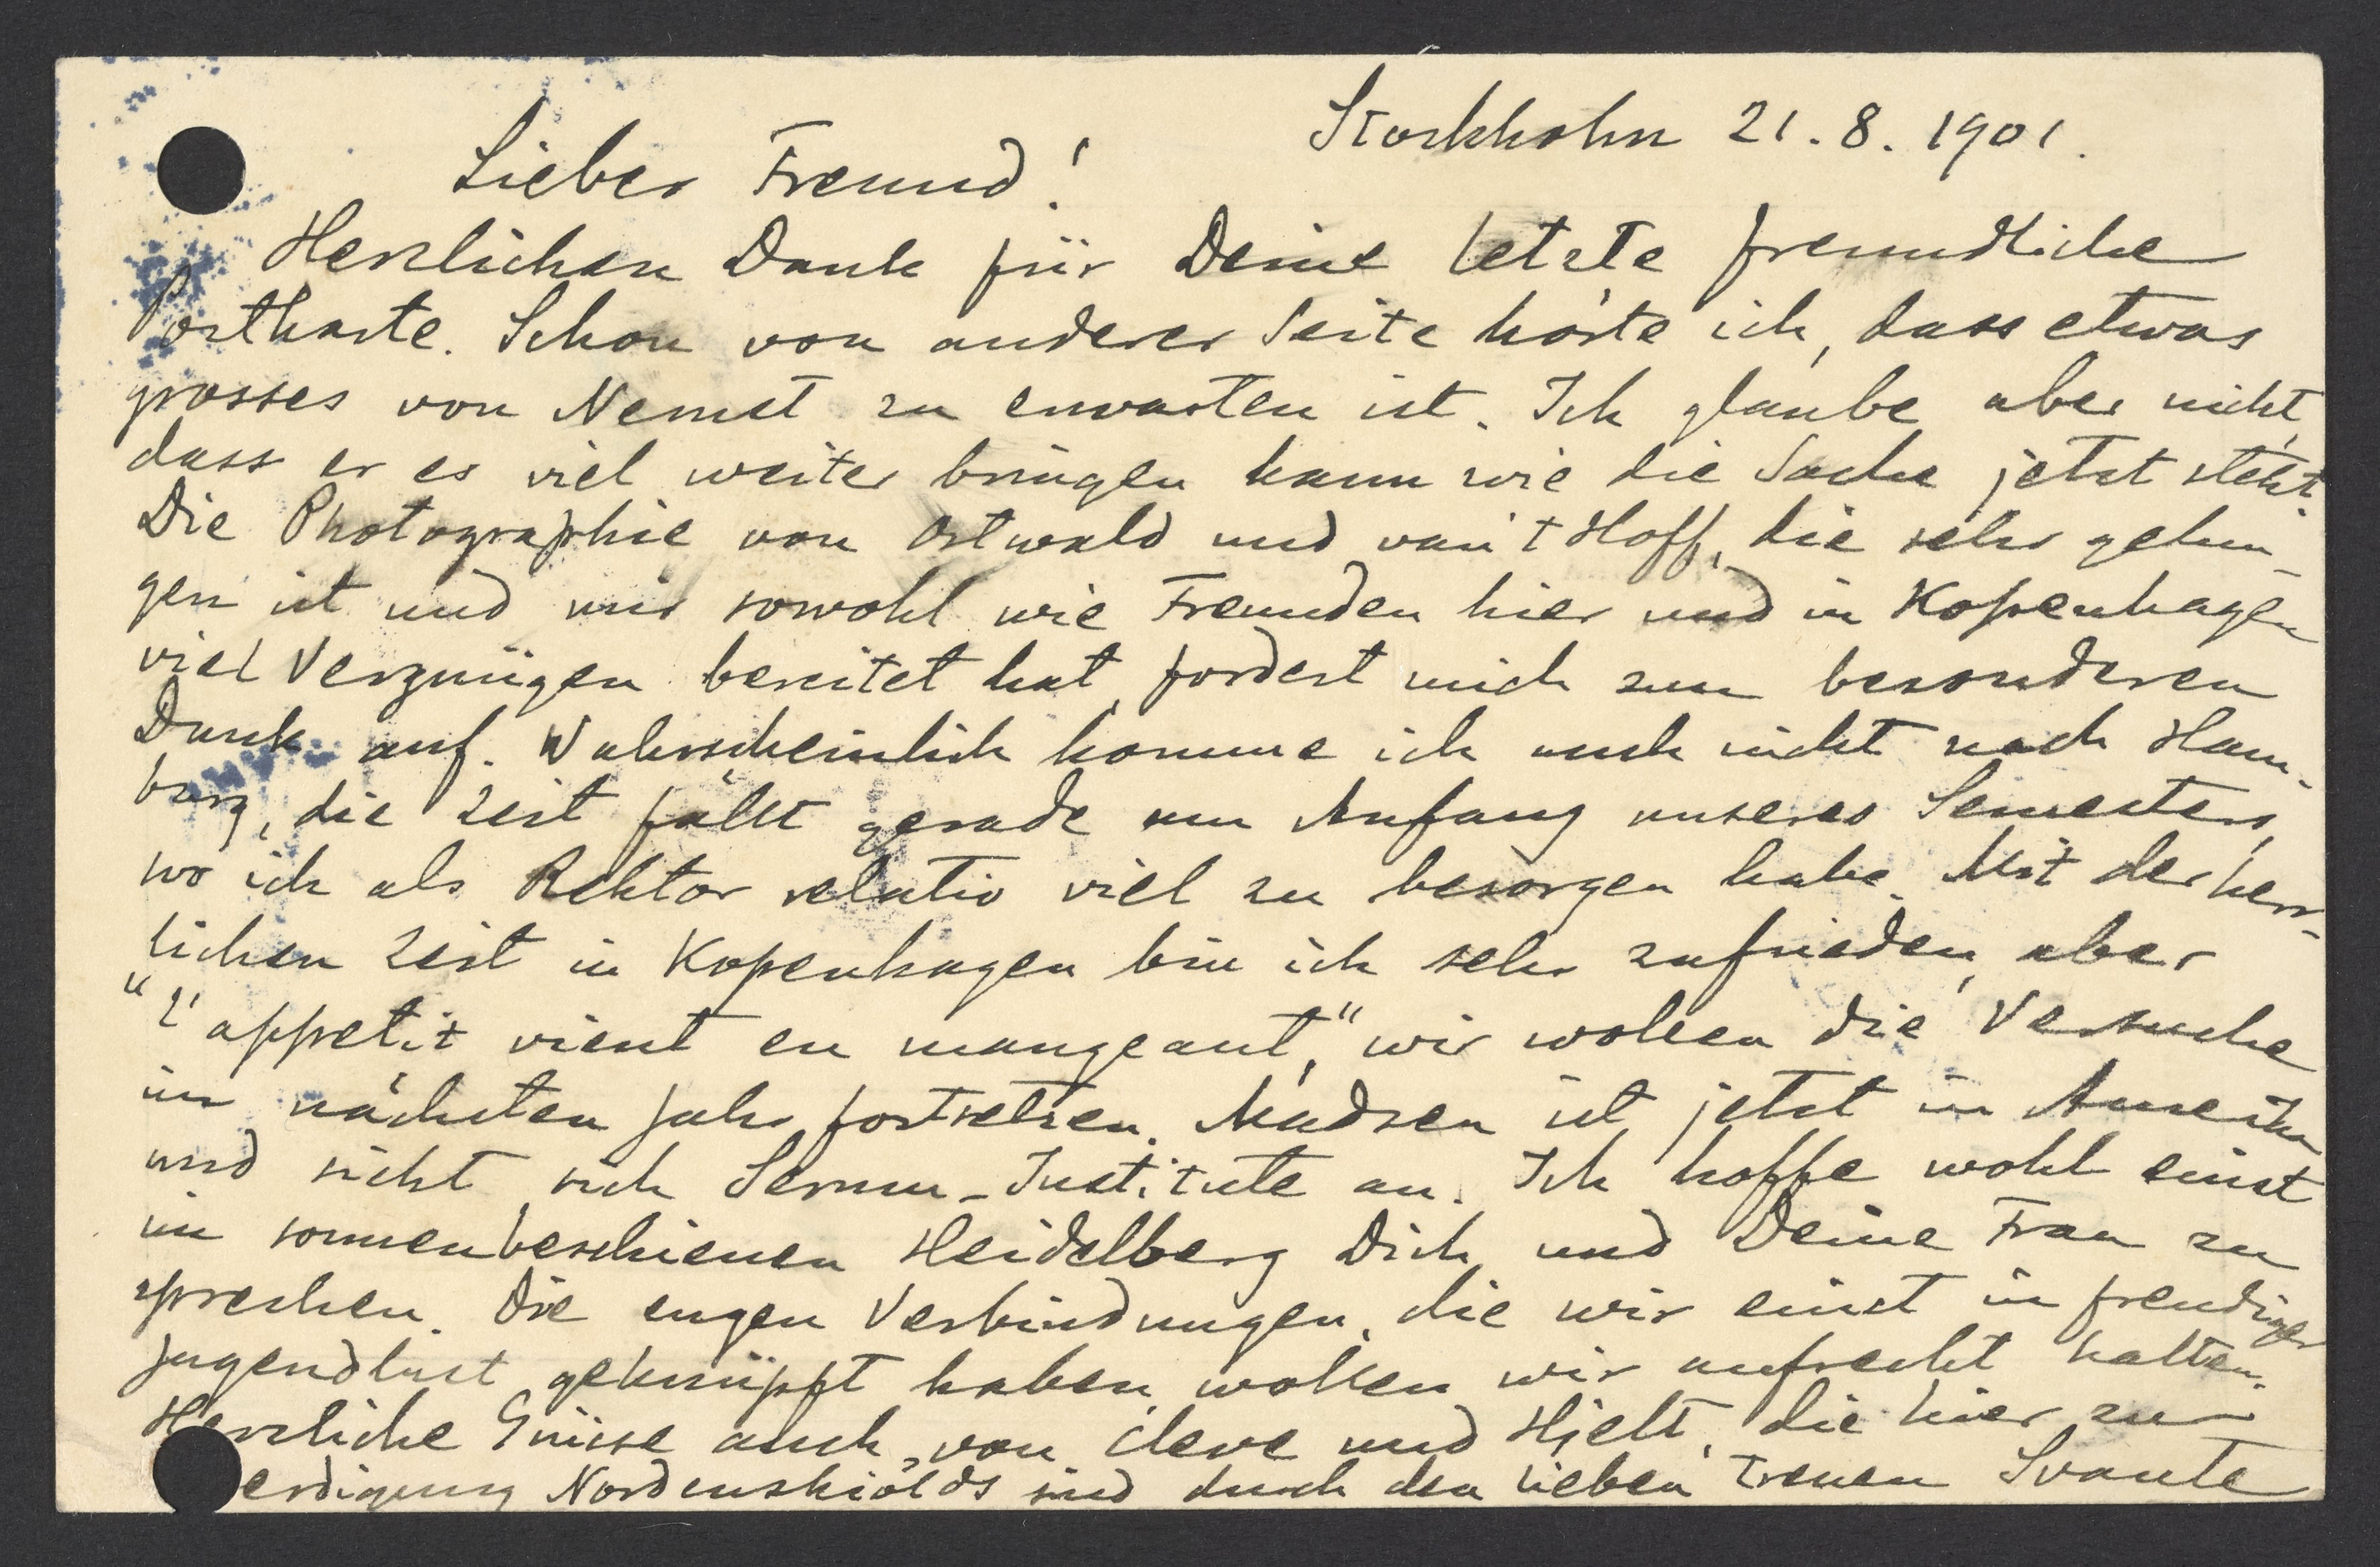 Stockholm 21.8.1901.
Lieber Freund!
Herzlichen Dank für Deine letzte freundliche
Postkarte. Schon von anderer Seite hörte ich, dass etwas
grosses von Nernst zu erwarten ist. Ich glaube aber nicht,
dass er es viel weiter bringen kann wie die Sache jetzt steht.
Die Photographie von Ostwald und van't Hoff, die sehr gelun-
gen ist und mir sowohl wie Freunden hier und in Kopenhagen
viel Vergnügen bereitet hat, fordert mich zum besonderen
Dank auf. Wahrscheinlich komme ich auch nicht nach Ham-
burg, die Zeit fällt gerade am Anfang unseres Semesters,
wo ich als Rektor relativ viel zu besorgen habe. Mit der herr-
lichen Zeit in Kopenhagen bin ich sehr zufrieden, aber
"l'appetit vient en mangeant," wir wollen die Versuche
im nächsten Jahr fortsetzen. Madsen ist jetzt in Amerika
und sieht sich Serum-Institute an. Ich hoffe wohl einst
im sonnenbeschienen Heidelberg Dich und Deine Frau zu
sprechen. Die engen Verbindungen, die wir einst in freudiger
Jugendlust geknüpft haben, wollen wir aufrecht halten.
Herzliche Grüsse auch von Cleve und Hjelt, die hier zur
erdigung Nordenskiölds sind durch den lieben treuen Svante